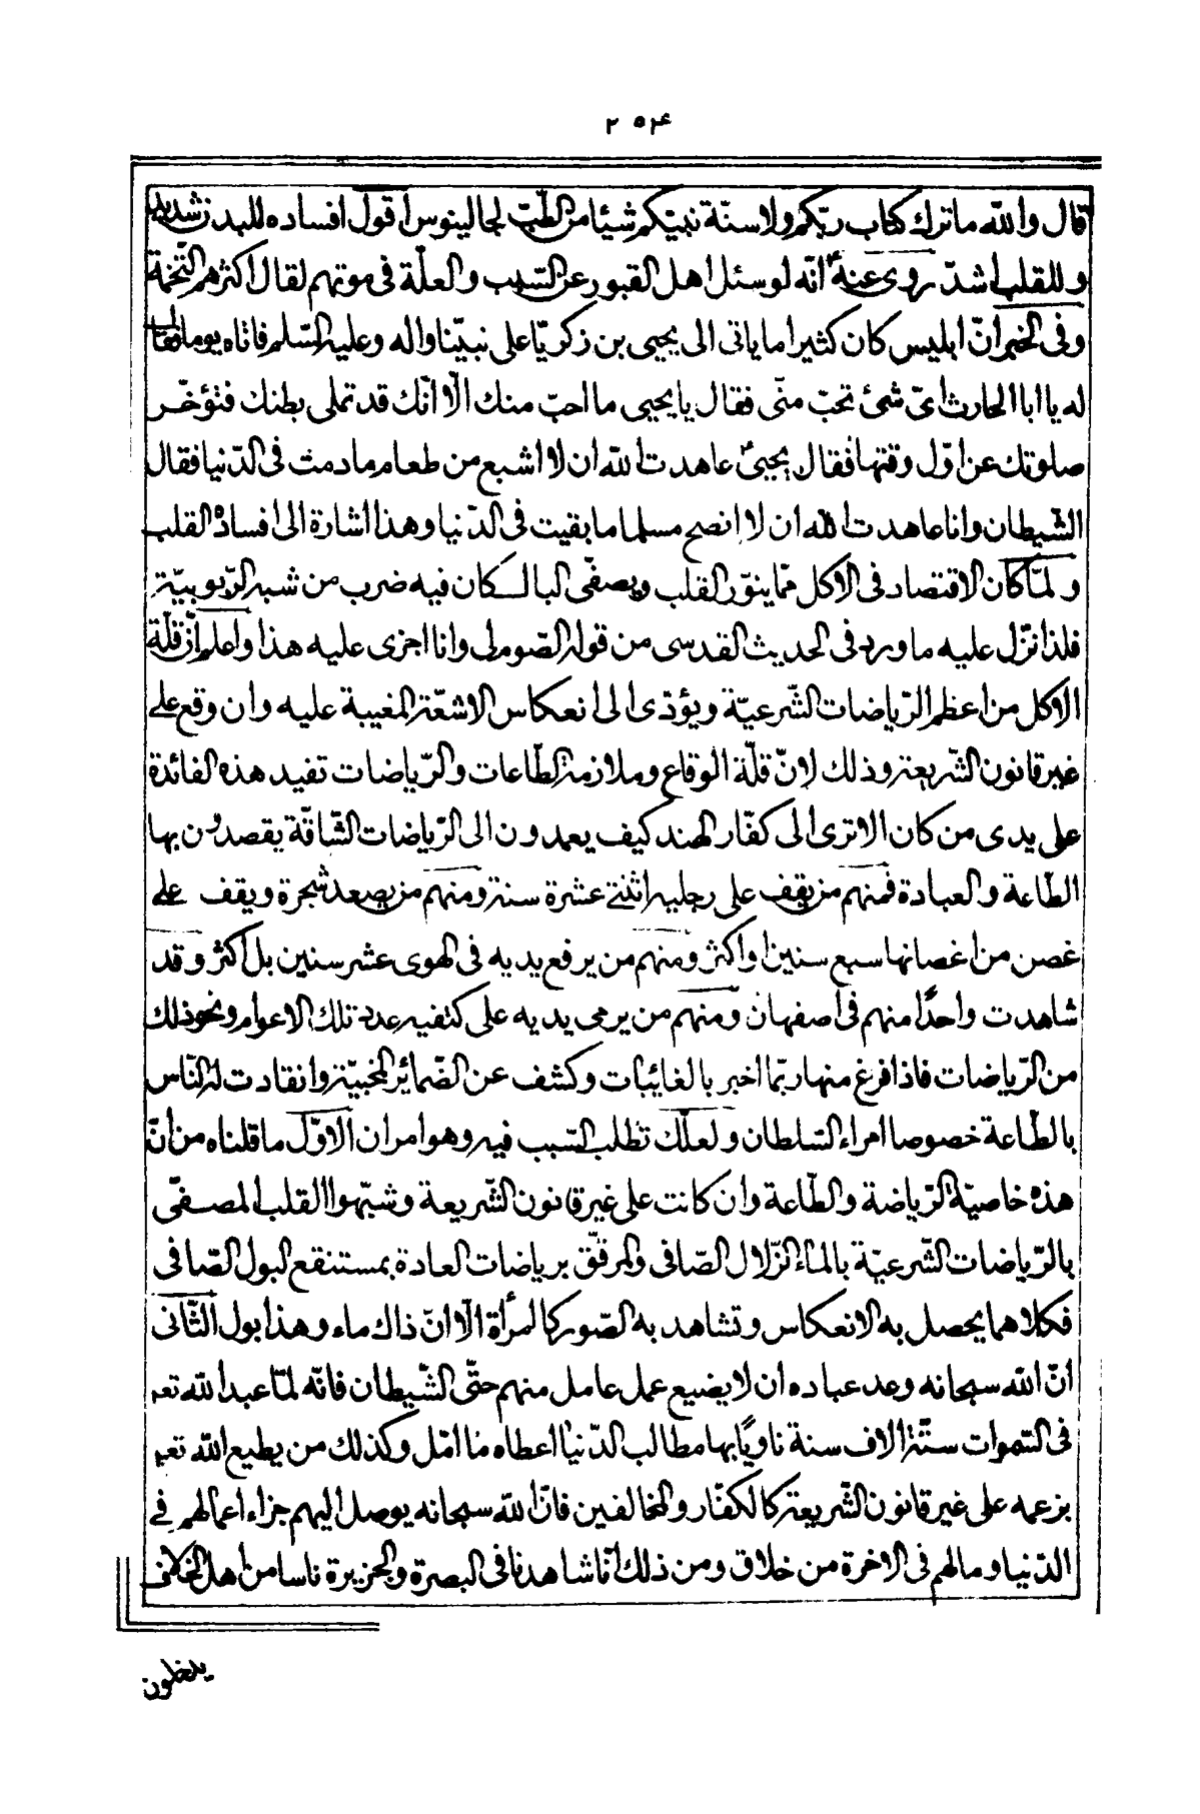 ۲۵۴
قال والله ما ترك كتاب ربّكم ولا سنّة نبيّكم شيئا من الطّبّ لجالينوس اقول افساده للبدن شديد
وللقلب اشدّ روى عنه انّه لو سئل اهل القبور عن السّبب والعلّة فى موتهم لقال اكثرهم التّخمة
وفى الخبر انّ ابليس كان كثيرا ما ياتى الى يحيى بن زكريّا على نبيّنا واله وعليه السّلم فاتاه يوما فقال
له يا ابا الحارث اىّ شئ تحبّ منّى فقال يا يحيى ما احبّ منك الّا انّك قد تملى بطنك فتؤخّر
صلوتك عن اوّل وقتها فقال يحيى عاهدت الله ان لا اشبع من طعام ما دمت فى الدّنيا فقال
الشّيطان وانا عاهدت الله ان لا انصح مسلما ما بقيت فى الدّنيا وهذا اشارة الى افساده القلب
ولمّا كان الاقتصاد فى الاكل ممّا ينوّر القلب ويصفّى البال كان فيه ضرب من شبه الرّبوبيّة
فلذا نزّل عليه ما ورد فى الحديث القدسى من قوله الصّوم لى وانا اجزى عليه هذا واعلم انّ قلّة
الاكل من اعظم الرّياضات الشّرعيّة ويؤدّى الى انعكاس الاشعّة المغيبة عليه وان وقع على
غير قانون الشّريعة وذلك لانّ قلّة الوقاع وملازمة الطّاعات والرّياضات تفيد هذه الفائدة
على يدى من كان الا ترى الى كفّار الهند كيف يعمدون الى الرّياضات الشّاقّة يقصدون بها
الطّاعة والعبادة فمنهم من يقف على رجليه اثنتى عشرة سنة ومنهم من يصعد شجرة ويقف على
غصن من اغصانها سبع سنين او اكثر ومنهم من يرفع يديه فى الهوى عشر سنين بل اكثر وقد
شاهدت واحدًا منهم فى اصفهان ومنهم من يرمى يديه على كتفيه عدد تلك الاعوام ونحو ذلك
من الرّياضات فاذا فرغ منها ربّما اخبر بالغائبات وكشف عن الضّمائر المخبيّة وانقادت له النّاس
بالطّاعة خصوصا امراء السّلطان ولعلّك تطلب السّبب فيه وهو امران الاوّل ما قلناه من انّ
هذه خاصيّة الرّياضة والطّاعة وان كانت على غير قانون الشّريعة وشبّهوا القلب المصفّى
بالرّياضات الشّرعيّة بالماء الزّلال الصّافى والمرقّق برياضات العادة بمستنقع البول الصّافى
فكلاهما يحصل به الانعكاس وتشاهد به الصّور كالمرأة الّا انّ ذاك ماء وهذا بول الثّانى
انّ الله سبحانه وعد عباده ان لا يضيع عمل عامل منهم حتّى الشّيطان فانّه لمّا عبد الله تعه
فى السّموات ستّة الاف سنة ناويًا بها مطالب الدّنيا اعطاه ما امّل وكذلك من يطيع الله تعه
بزعمه على غير قانون الشّريعة كالكفّار والمخالفين فانّ الله سبحانه يوصل اليهم جزاء اعمالهم فى
الدّنيا وما لهم فى الاخرة من خلاق ومن ذلك انّا شاهدنا فى البصرة والجزيرة ناسا من اهل الخلاف